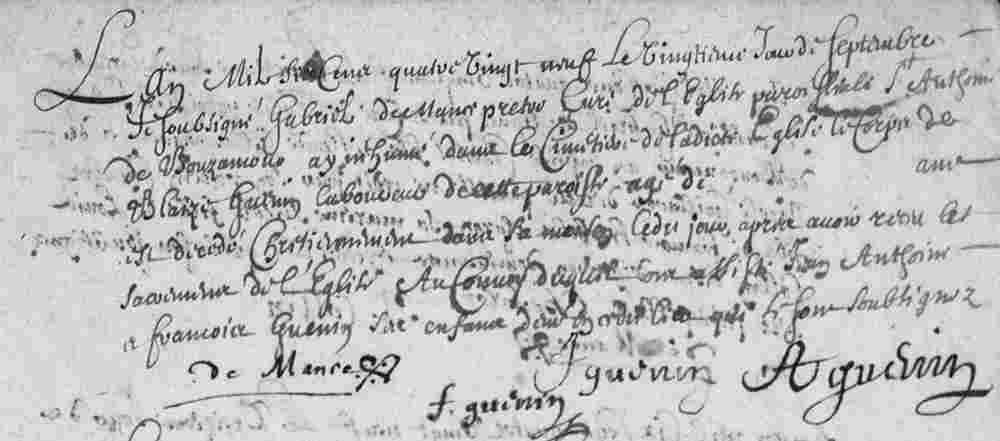 L'an Mil six Cens quatre Vingt neuf Le Vingtieme Jour de septembre
Je soubsigné Gabriel prestre Curé de l'Eglise paroissialle St Anthoine
de ay inhumé dans le Cimetiere de ladicte Eglise le Corps de
Blaize Guenin laboureur de cette paroisse agé de ans
est decedé Chretiennement dans sa maison cedit jour apres avoir receu les
sacremens de l'Eglise Au Convoy duquel ont assisté Jean Anthoine
et francois Guenin ses enfans qui se sont soubsignez
de Mance
J guenin
A guenin
f. guenin